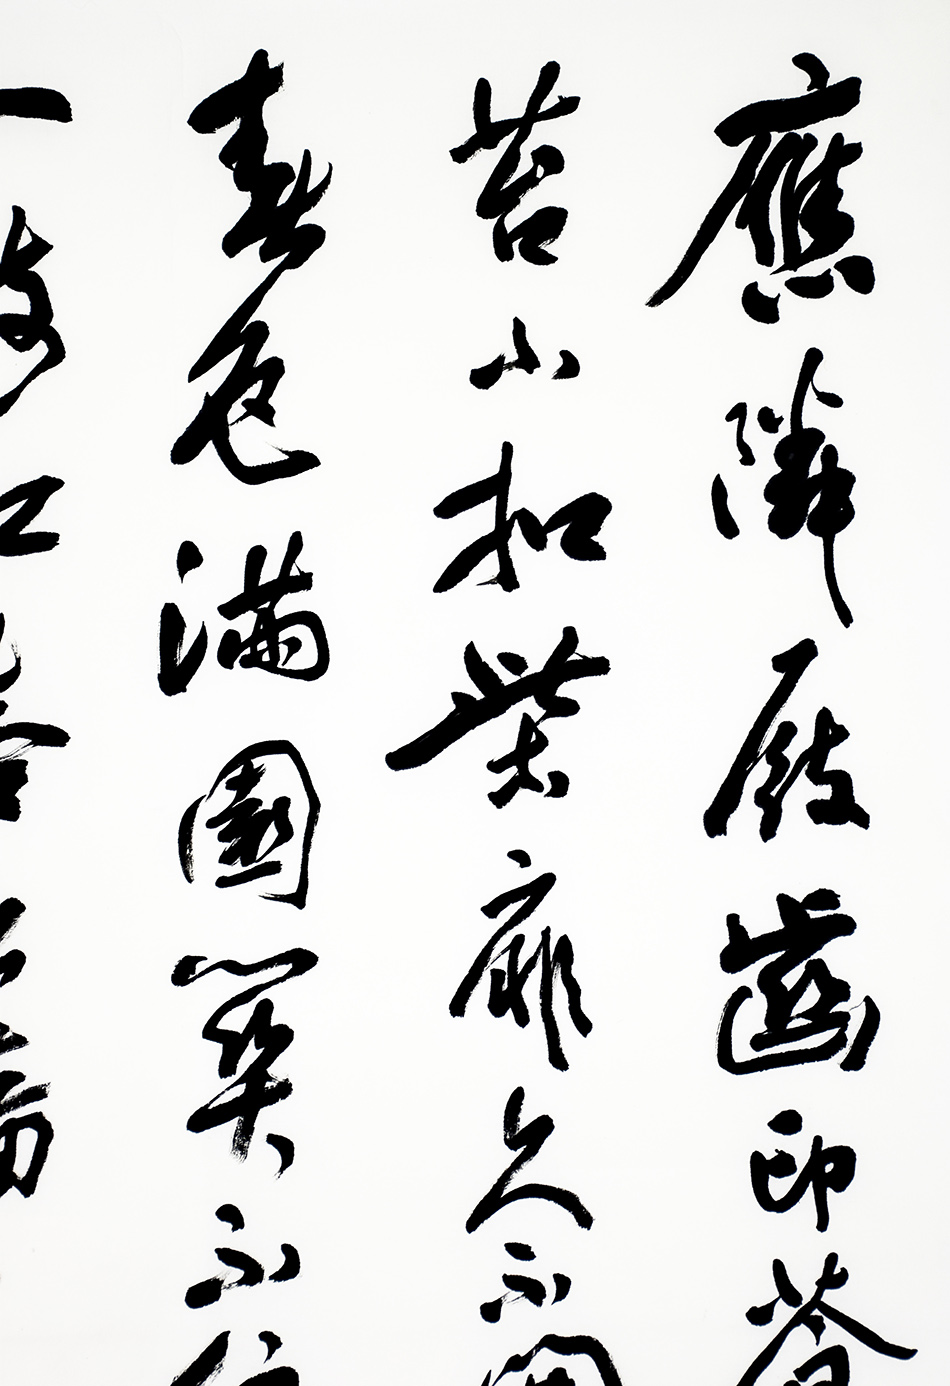 應憐屐齒印蒼
苔小扣柴扉久不開
春色滿園關不住
一